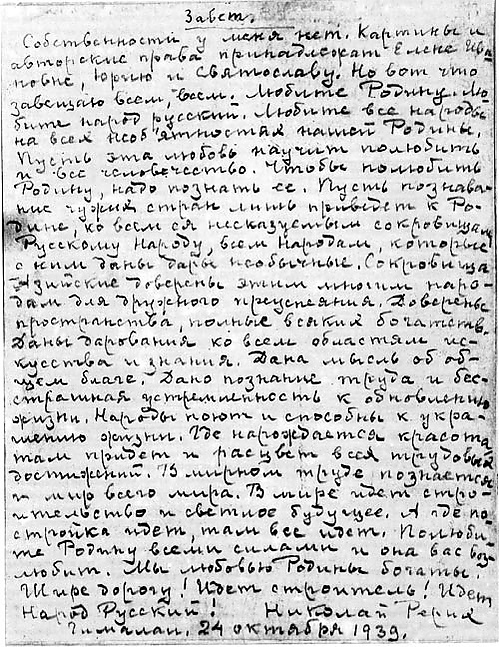 Завет.
Собственности у меня нет. Картины и
авторские права принадлежат Елене Ива
новне, Юрию и Святославу. Но вот что
завещаю всем, всем. Любите Родину. Лю-
бите народ русский. Любите все народы
на всех необ'ятностях нашей Родины.
Пусть эта любовь научит полюбить
и все человечество. Чтобы полюбить
Родину, надо познать ее. Пусть познава-
ние чужих стран лишь приведет к Ро-
дине, ко всем ея несказуемым сокровищам.
Русскому народу, всем народам, которые
с ним даны дары необычные. Сокровища
азийские доверены этим многим наро-
дам для дружного преуспеяния. Доверены
пространства, полные всяких богатств.
Даны дарования ко всем областям ис-
кусства и знания. Дана мысль об об-
щем благе. Дано познание труда и бес-
страшная устремленность к обновлению
жизни. Народы поют и способны к укра-
шению жизни. Где нарождается красота
там придет и расцвет всех трудовых
достижений. В мирном труде познается
и мир всего мира. В мире идет стро-
ительство и светлое будущее. А где по-
стройка идет, там все идет. Полюби-
те Родину всеми силами и она вас воз-
любит. Мы любовью Родины богаты.
Шире дорогу! Идет строитель! Идет
Народ Русский! Николай Рерих
Гималаи. 24 октября 1939.